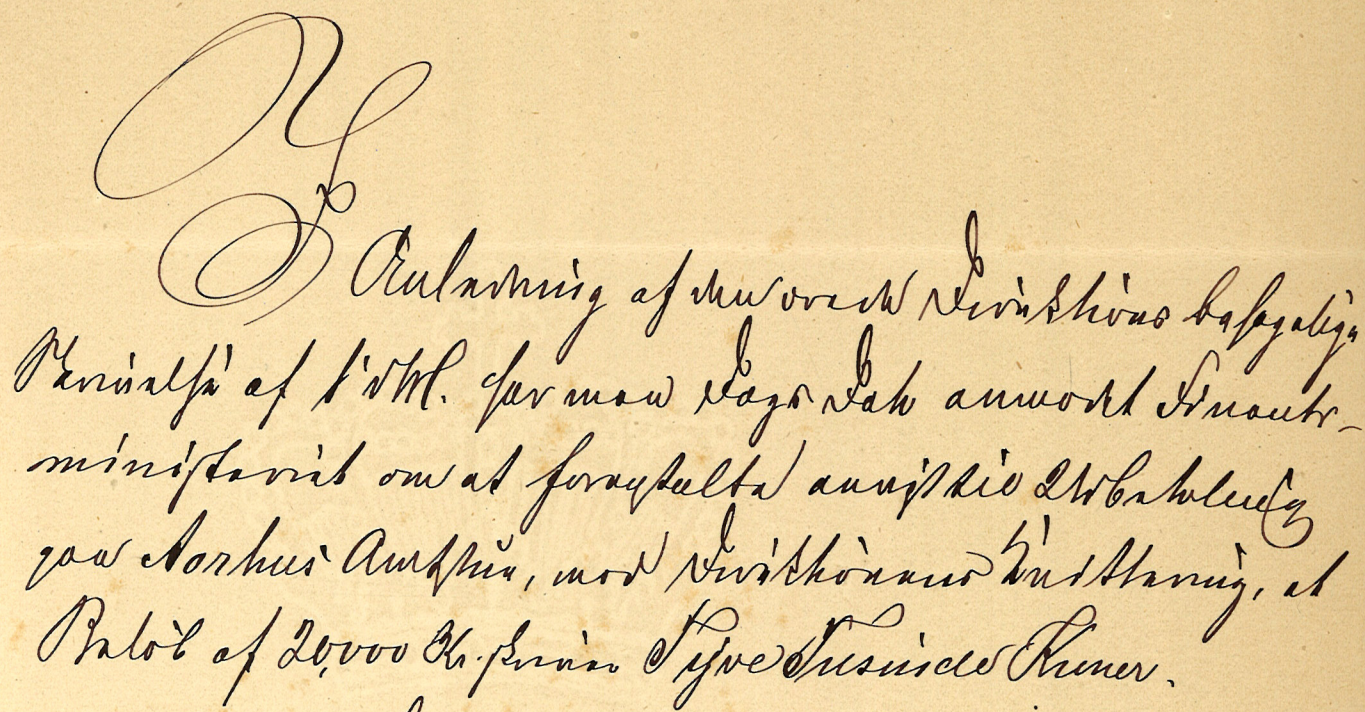 I Anledning af den ærede Direktions behagelige
Skrivelse af 1' ds. har man Dags Dato anmodet Finants-
ministeriet om at foranstalte anvist til Udbetaling
paa Aarhus Amtstue, mod Direktionens Kvittering, et
Beløb af 20,000 Kr. skriver Tyve Tusinde Kroner.